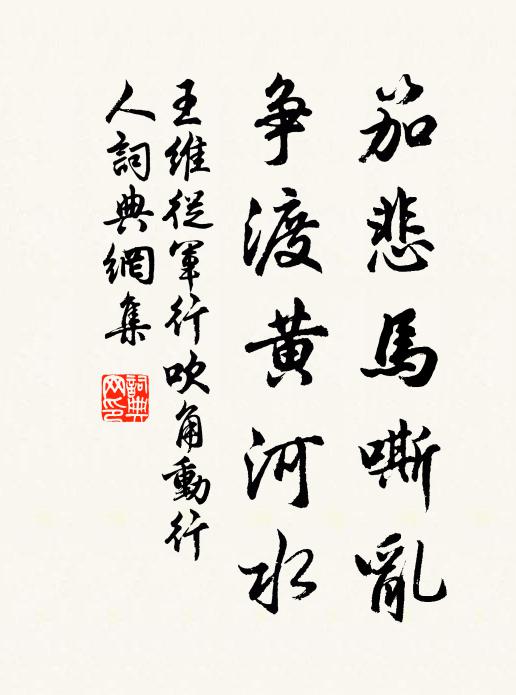 笳悲馬嘶亂
争渡黄河水
王維從軍行吹角動行
人詞典網集
詞典网印